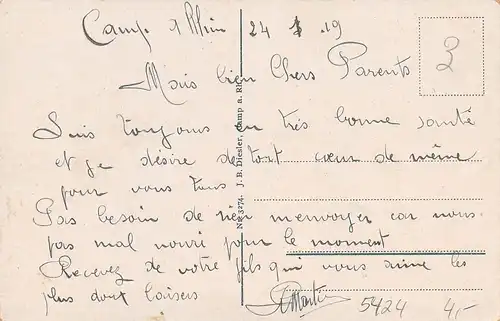 Camp s Rhin 24 1 19
3
Mais bien Chers Parents
Suis toujours en très bonne santé
et je désire de tout cœur de même
pour vous tous
Pas besoin de rien m'envoyer car nous
pas mal nourri pour le moment
Recevez de votre fils qui vous aime les
plus doux baisers
Martin
5424 4,-
No 3274. J. B. Diesler, Camp a. Rh.